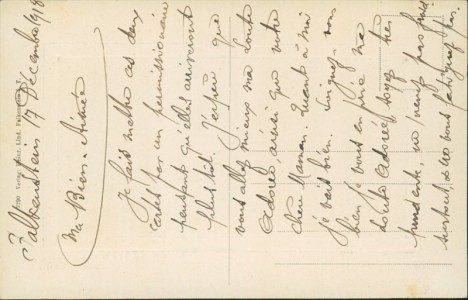 Falkenstein 17 Décembre 1918
Ma Bien-Aimée
Je fais mettre ces deux
cartes par un permissionnaire
pensant qu'elles arriveront
plus tôt. J'espère que
vous allez mieux ma Loute
Adorée ainsi que votre
chère Maman. Quant à moi
je vais bien. Soignez-vous
bien je vous en prie ma
Loute adorée, soyez très
prudente, ne prenez pas froid
surtout, & ne vous fatiguez pas.
Verlag
Falkenstein